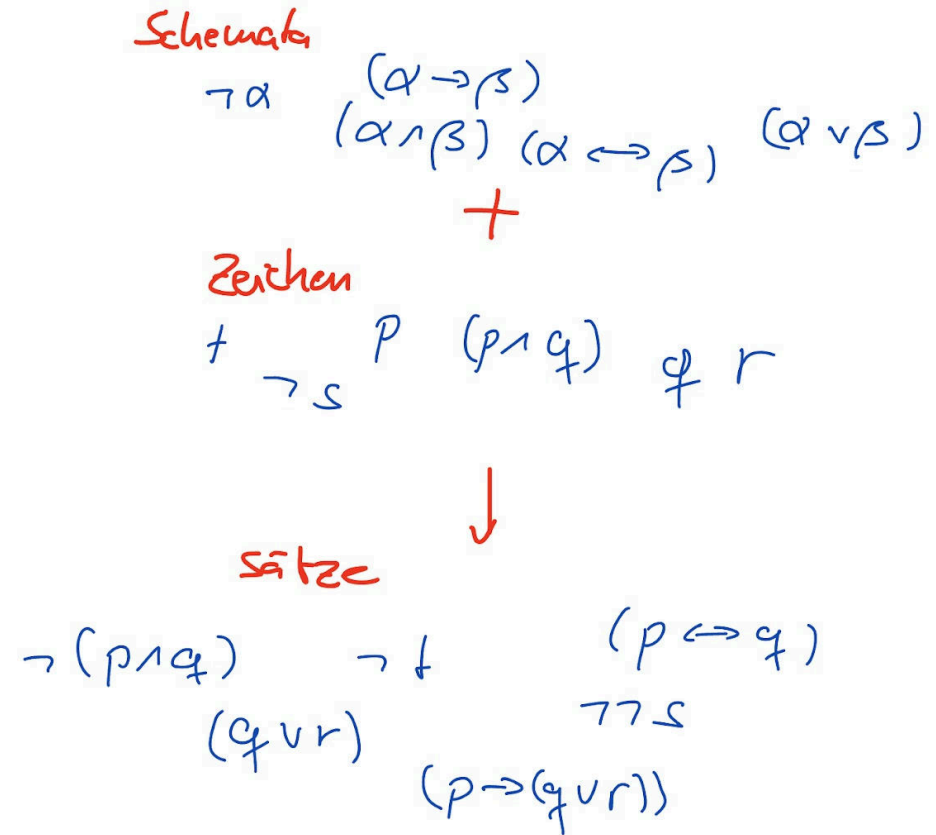 Schemata
¬α (α→β)
(α∧β) (α↔β) (α∨β)
+
Zeichen
t ¬s p (p∧q) q r
↓
Sätze
¬(p∧q) ¬t (p↔q)
(q∨r) ¬¬s
(p→(q∨r))